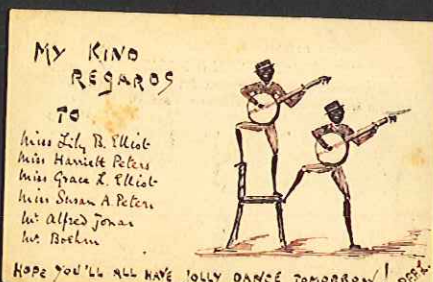 MY KIND
REGARDS
TO
Miss Lily B. Elliot
Miss Harriett Peters
Miss Grace L. Elliot
Miss Susan A. Peters
Mr Alfred Jonas
Mr. Boehm
HOPE YOU'LL ALL HAVE JOLLY DANCE TOMORROW!